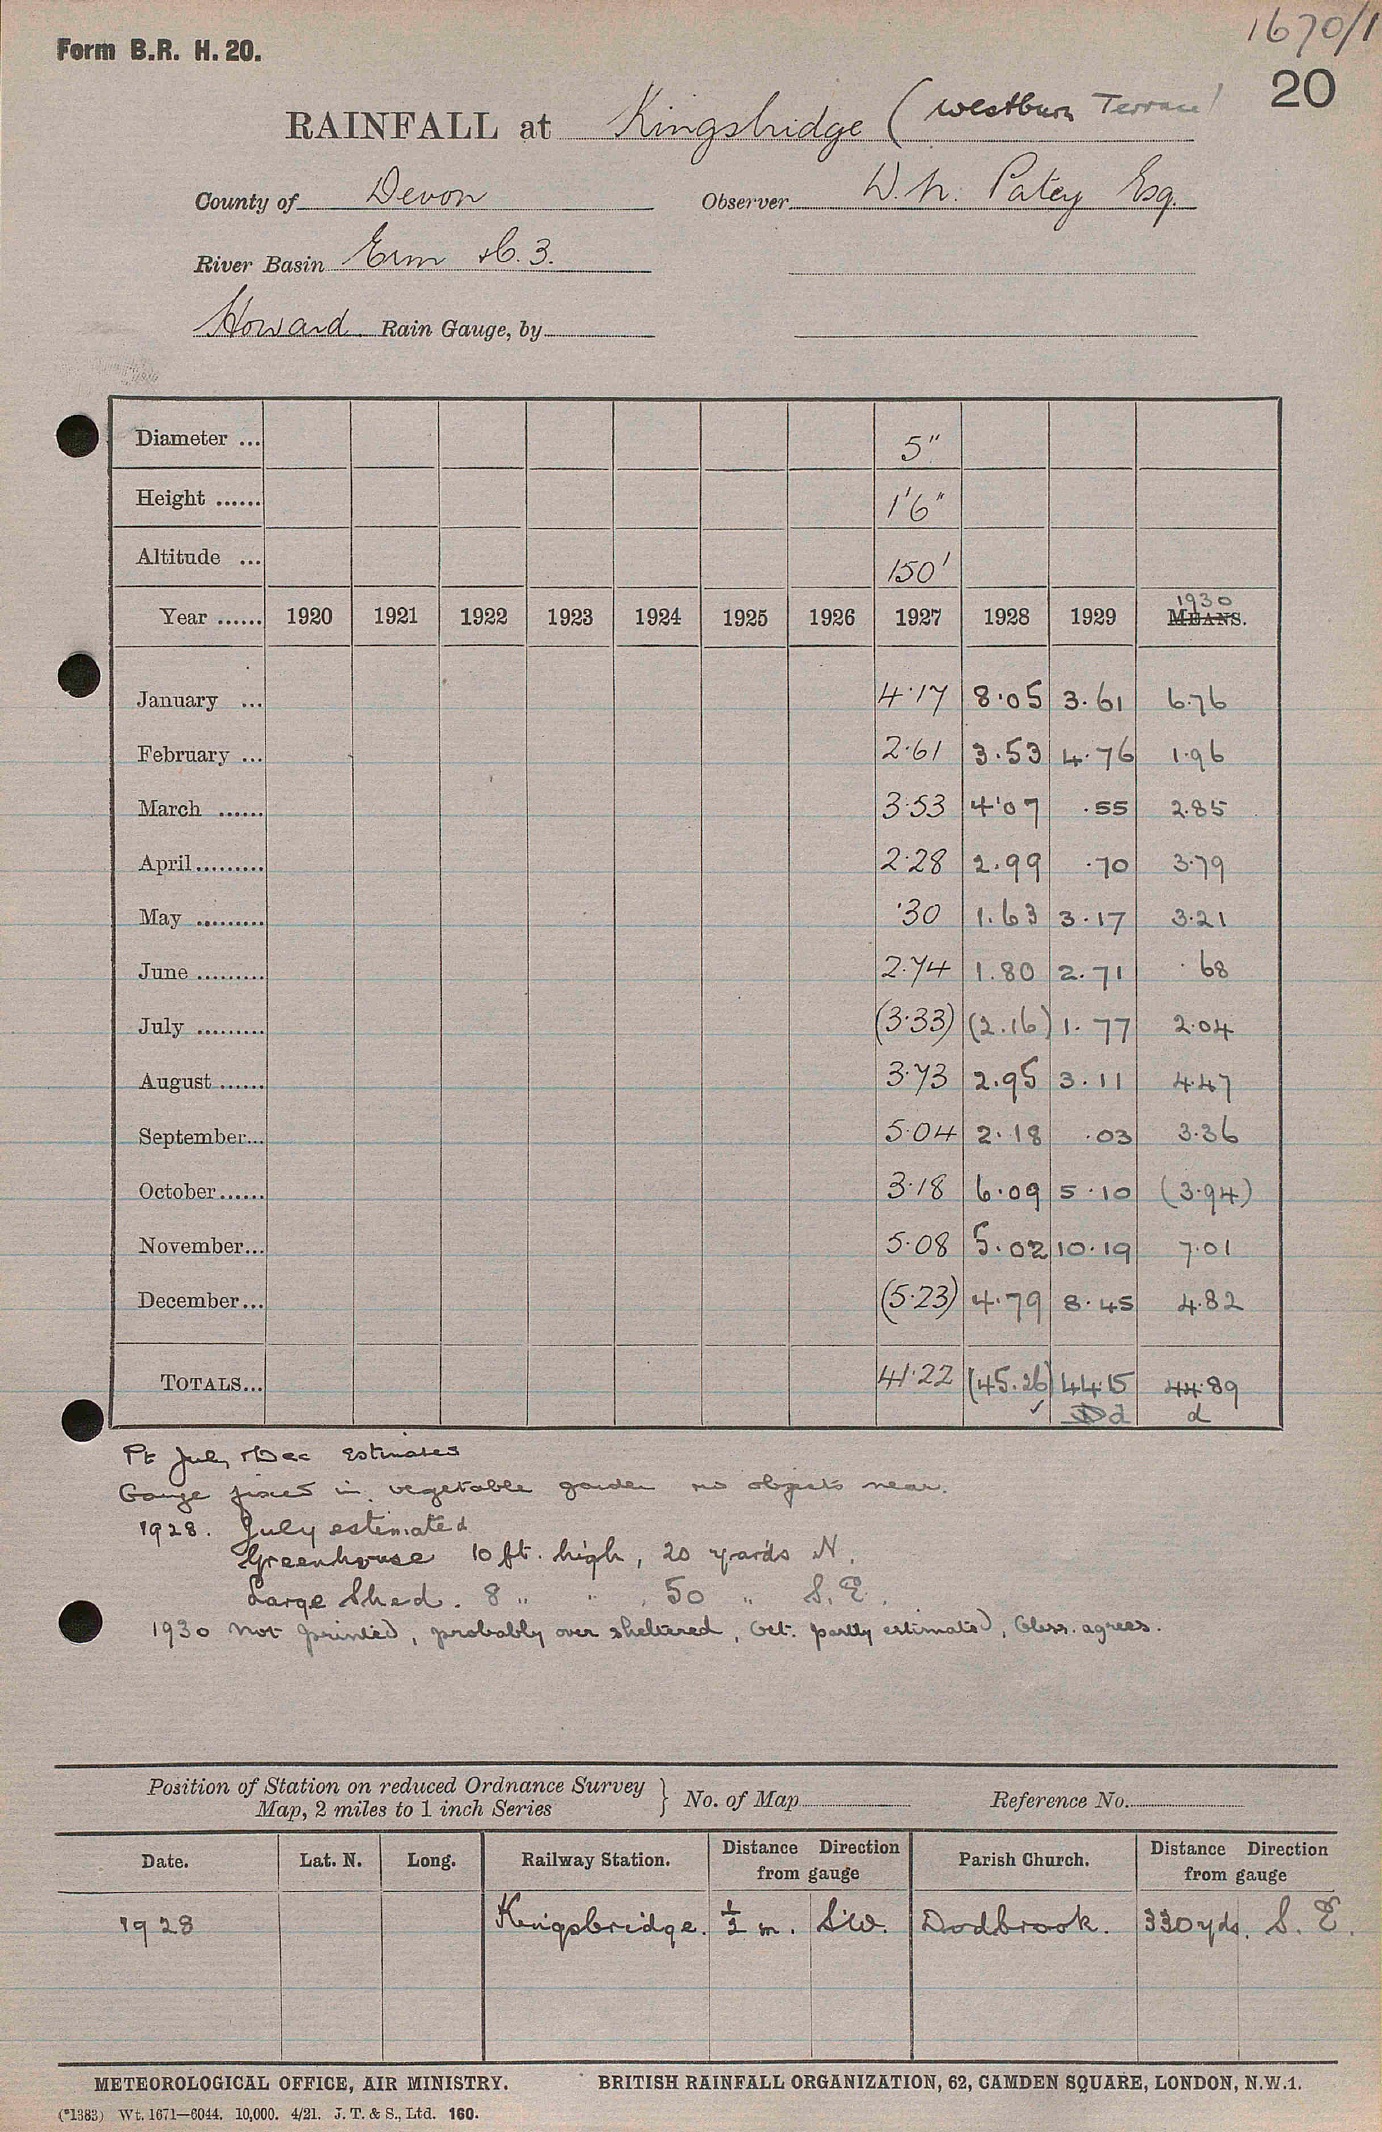 1670/1
Form B.R. H. 20.
20
RAINFALL at Kingsbridge (Westburn Terrace)
County of Devon Observer W. N. Patey Esq.
River Basin Erm &C. 3.
Howard Rain Gauge, by
Diameter ... 5"
Height ...... 1'6"
Altitude ... 150'
1930
Year ...... 1920 1921 1922 1923 1924 1925 1926 1927 1928 1929 MEANS.
January ... 4.17 8.05 3.61 6.76
February ... 2.61 3.53 4.76 1.96
March ...... 3.53 4.07 .55 2.85
April......... 2.28 2.99 .70 3.79
May ......... .30 1.63 3.17 3.21
June ......... 2.74 1.80 2.71 .68
July ......... (3.33) (2.16) 1.77 2.04
August ...... 3.73 2.95 3.11 4.47
September... 5.04 2.18 .03 3.36
October...... 3.18 6.09 5.10 (3.94)
November... 5.08 5.02 10.19 7.01
December... (5.23) 4.79 8.45 4.82
TOTALS... 41.22 (45.26) 44.15 44.89
✓ d d
Pt July & Dec Estimated
Gauge fixed in vegetable garden no objects near.
1928. July estimated
Greenhouse 10 ft. high, 20 yards N.
Large Shed. 8 " " , 50 " S.E.
1930 Not printed, probably over sheltered, Oct. partly estimated, Obsr. agrees.
Position of Station on reduced Ordnance Survey } No. of Map Reference No.
Map, 2 miles to 1 inch Series
Date. Lat. N. Long. Railway Station. Distance Direction from gauge Parish Church. Distance Direction from gauge
1928 Kingsbridge. 1/2 m. S.W. Dodbrook. 330 yds. S.E.
METEOROLOGICAL OFFICE, AIR MINISTRY. BRITISH RAINFALL ORGANIZATION, 62, CAMDEN SQUARE, LONDON, N.W.1.
(*1383) Wt. 1671—6044. 10,000. 4/21. J. T. & S., Ltd. 160.